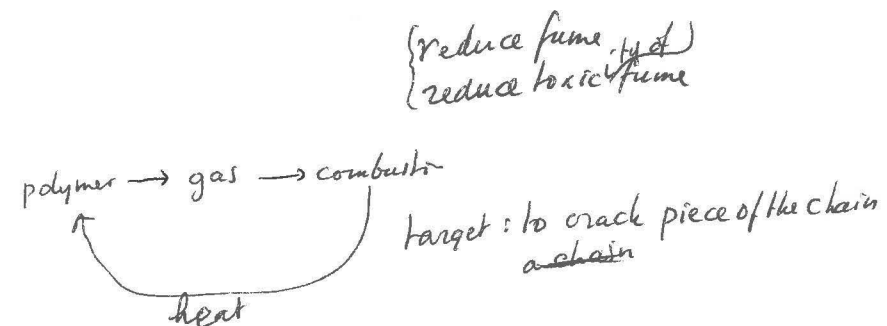 reduce fume
reduce toxicity of fume
polymer → gas → combustion
target : to crack piece of the chain
a chain
heat